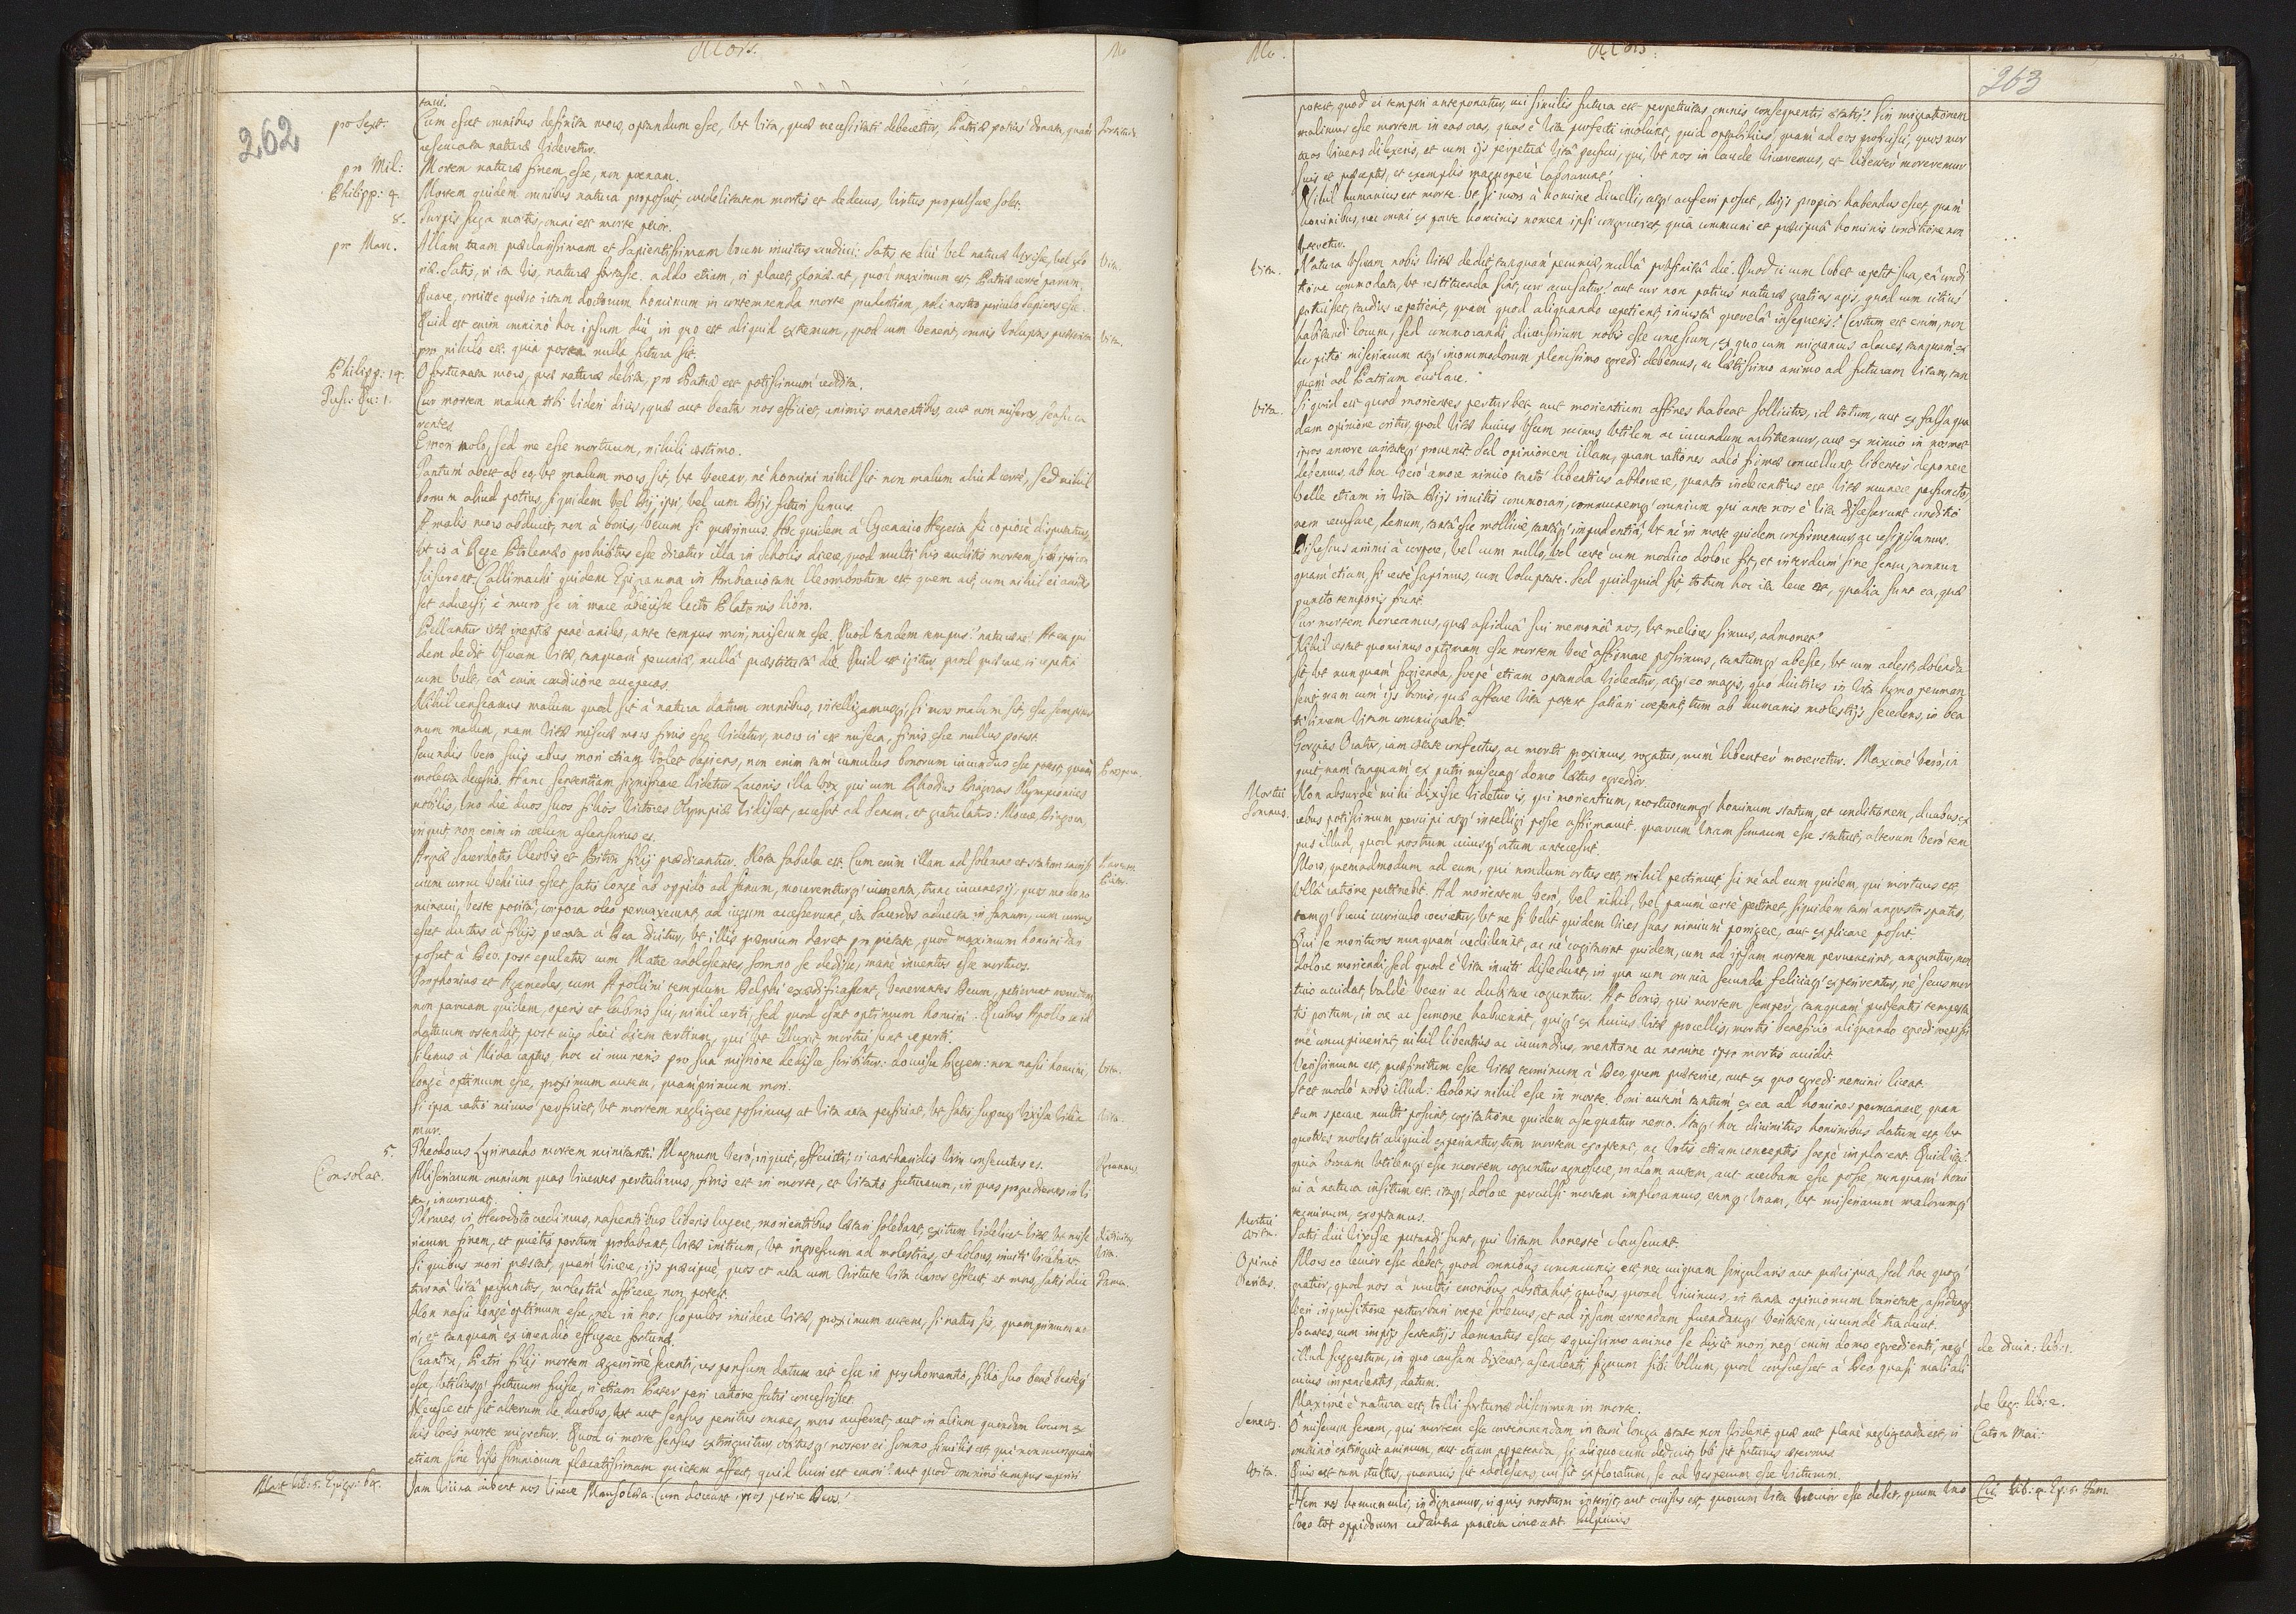 Mors.
Mo
262
tavi.
pro Sext. Cum esset omnibus definita mors, optandum esse, ut vita, quæ necessitati deberetur, Patriæ potius donata, quam
reservata naturæ videretur.
pro Mil: Mortem naturæ finem esse, non pœnam.
Philipp: 4. Mortem quidem omnibus natura proposuit, crudelitatem mortis et dedecus, virtus propulsare solet.
8. Turpis fuga mortis, omni est morte peior.
pro Marc. Illam tuam præclarissimam et sapientissimam vocem invitus audivi: satis te diu vel naturæ vixisse, vel glo Vita.
riæ. Satis, si ita vis, naturæ fortasse. addo etiam, si placet, gloriæ at, quod maximum est, Patriæ certe parum.
Quare, omitte quæso istam doctorum hominum in contemnenda morte prudentiam, noli nostro periculo sapiens esse.
Quid est enim omnino hoc ipsum diu, in quo est aliquid extremum, quod cum venerit, omnis voluptas præterita Vita.
pro nihilo est. quia postea nulla futura sit.
Philipp: 14. O fortunata mors, quæ naturæ debita, pro Patria est potissimum reddita.
Tusc: Qu: 1. Cur mortem malum tibi videri dicis, quæ aut beatos nos efficiet, animis manentibus, aut non miseros, sensu ca
rentes.
Emori nolo, sed me esse mortuum, nihili æstimo.
Tantum abest ab eo, ut malum mors sit, ut verear, ne homini nihil sit non malum aliud certe, sed nihil
bonum aliud potius, siquidem vel Dij ipsi, vel cum Dijs futuri sumus.
A malis mors abducit, non a bonis, verum si quærimus. Hoc quidem a Cyrenaico Hegesia sic copiose disputatur,
ut is a Rege Ptolemæo prohibitus esse dicatur illa in scholis dicere, quod multi his auditis mortem sibi ipsi con
sciscerent. Callimachi quidem Epigramma in Ambraciotam Cleombrotum est, quem ait, cum nihil ei accidis
set adversi, e muro se in mare abiecisse lecto Platonis libro.
Pellantur istæ ineptiæ pene aniles, ante tempus mori miserum esse. Quod tandem tempus? naturæne? At ea qui
dem dedit usuram vitæ, tanquam pecuniæ, nulla præstituta die. Quid est igitur, quod querare, si repetit
cum vult, ea enim conditione acceperas.
Nihil censeamus malum quod sit a natura datum omnibus, intelligamusq; si mors malum sit, esse sempiter
num malum, nam vitæ miseræ mors finis esse videtur, mors si est misera, finis esse nullus potest.
Secundis vero suis rebus mori etiam volet sapiens, non enim tam cumulus bonorum iucundus esse potest, quam
molesta decessio. Hanc sententiam significare videtur Laconis illa vox, qui cum Rhodius Diagoras Olympionices
nobilis, uno die duos suos filios victores Olympiæ vidisset, accessit ad senem, et gratulatus: Morere Diagora,
inquit non enim in cœlum ascensurus es.
Argiæ Sacerdotis Cleobis et Biton filij prædicantur. Nota fabula est. Cum enim illam ad solemne et statum sacrifi
cium curru vehi ius esset, satis longe ab oppido ad fanum, morarenturq; iumenta, tunc iuvenes ij, quos modo no
minavi, veste posita, corpora oleo perunxerunt, ad iugum accesserunt, ita Sacerdos advecta in fanum, cum currus
esset ductus a filijs precata a Dea dicitur, ut illis præmium daret pro pietate, quod maximum homini dari
posset a Deo. post epulatos cum Matre adolescentes, somno se dedisse, mane inventos esse mortuos.
Trophonius et Agamedes, cum Apollini templum Delphis exædificassent, venerantes Deum, petierunt mercedem
non parvam quidem, operis et laboris sui, nihil certi, sed quod esset optimum homini. Quibus Apollo se id
daturum ostendit, post eius diei diem tertium, qui ut illuxit mortui sunt reperti.
Silenus a Mida captus, hoc ei muneris pro sua missione dedisse scribitur: docuisse Regem: non nasci homini, Vita.
longe optimum esse, proximum autem, quamprimum mori.
Si ipsa ratio minus perficiet, ut mortem negligere possimus, at vita acta perficiat, ut satis superq; vixisse videa Vita
mur.
5. Theodorus Lysimacho mortem minitanti: Magnum vero, inquit, effecisti, si cantharidis vim consecutus es.
Consolat. Miseriarum omnium quas viventes pertulimus, finis est in morte, et vitatio futurarum, in quas progredientes in vi
ta, incurrunt.
Thraces, si Herodoto credimus, nascentibus liberis lugere, morientibus lætari solebant, exitum videlicet vitæ ut mise
riarum finem, et quietis portum probabant, vitæ initium, ut ingressum ad molestias, et dolores, inviti videbant. Vita.
Si quibus mori præstat, quam vivere, ijs præcipue, quos et acta cum virtute vita claros effecit, et mors, satis diu Fama.
turna vita perfunctos, molestia afficere non potest.
Non nasci longe optimum esse, nec in hos scopulos incidere vitæ, proximum autem, si natus sis, quamprimum mo
ri, et tanquam ex incendio effugere fortunæ.
Crantor, Patri filij mortem ægerrime ferenti, responsum datum ait esse in psychomantio, filio suo bene beateq;
esse, utiliusq; futurum fuisse, si etiam Pater pari ratione fatis concessisset.
Necesse est sit alterum de duobus, ut aut sensus penitus omnes, mors auferat, aut in alium quendam locum ex
his locis morte migretur. Quod si morte sensus extinguitur, obitusq; noster ei somno similis est, qui nonnunquam
etiam sine visis somniorum placatissimam quietem affert, quid lucri est emori? aut quod omnino tempus reperiri
Mart. lib: 5. Epigr: 64. Jam vicina iubent nos vivere Mausolea. Cum doceant ipsos perire Deos.
Mo.
Mors.
263
potest, quod ei tempori anteponatur, cui similis futura est perpetuitas omnis consequentis ætatis? Sin migrationem
malimus esse mortem in eas oras, quas e vita profecti incolunt, quid optabilius, quam ad eos proficisci, quos mor
tuos vivens dilexeris, et cum ijs perpetua vita perfrui, qui, ut nos in laude viveremus, et libenter moreremur
suis et præceptis, et exemplis magnopere laborarunt?
Nihil humanius est morte. Ut si mors a homine divelli, atq; auferri posset, Dijs propior habendus esset, quam
hominibus, nec omni ex parte hominis nomen ipsi congrueret, quia communi et præcipua hominis conditione non
teneretur.
Vita. Natura usuram nobis vitæ dedit, tanquam pecuniæ, nulla præfinita die. Quod si cum lubet repetit sua, ea condi
tione commodata, ut restituenda sint, cur accusatur? aut cur non potius naturæ gratias agis, quod cum citius
potuisset, tardius repetierit, quam quod aliquando repetierit iniusta querela insequeris? Certum est enim, non
habitandi locum, sed commorandi, diversorium nobis esse concessum, ex quo cum migramus alacres, tanquam ex
hospitio miseriarum atq; incommodorum plenissimo egredi debemus, ac lætissimo animo ad futuram vitam, tan
quam ad Patriam evolare.
Vita. Si quid est quod morientes perturbet aut morientium affines habeat sollicitos, id totum, aut ex falsa qua
dam opinione oritur, quod vitæ huius usum nimis utilem ac iucundum arbitremur, aut ex nimio in nosmet
ipsos amore caritateq; provenit. Sed opinionem illam, quam rationes adeo firmæ convellunt, libenter deponere
debemus, ab hoc vero amore nimio tanto libentius abhorrere, quanto indecentius est vitæ munere perfunctos,
velle etiam in vita Dijs invitis commorari, communemq; omnium qui ante nos e vita discesserunt conditio
nem recusare, demum, tanta esse mollitie, tantaq; impudentia, ut ne in morte quidem confirmemur, ac resipiscamus.
Discessus animi a corpore, vel cum nullo, vel certe cum modico dolore fit, et interdum sine sensu, nonnun
quam etiam, si recte sapimus, cum voluptate. Sed quidquid sit, totum hoc ita leve est, qualia sunt ea, quæ
puncto temporis fiunt.
Cur mortem horreamus, quæ assidua sui memoria nos, ut meliores simus, admonet?
Nihil restat quominus optimam esse mortem vere affirmare possimus, tantumq; abesse, ut cum adest, dolenda
sit, ut nunquam fugienda, sæpe etiam optanda videatur, atq; eo magis, quo diutius in vita homo perman
serit, nam cum ijs bonis, quæ afferre vita potest satiari cœperit, tum ab humanis molestijs secedens, in bea
tissimam vitam commigrabit.
Gorgias Orator, iam ætate confectus, ac morti proximus, rogatus, num libenter moreretur. Maxime vero, in
quit, nam tanquam ex putri miseraq; domo lætus egredior.
Mortui Somnus. Non absurde mihi dixisse videtur is, qui morientium, mortuorumq; hominum statum, et conditionem, duabus ex
rebus potissimum percipi atq; intelligi posse affirmavit. quarum unam somnum esse statuit, alterum vero tem
pus illud, quod nostrum cuiusq; ortum antecessit.
Mors, quemadmodum ad eum, qui nondum ortus est, nihil pertinuit, sic ne ad eum quidem, qui mortuus est,
ulla ratione pertinebit. Ad morientem vero, vel nihil, vel parum certe pertinet, siquidem tam angustis spatijs,
tamq; brevi curriculo coercetur, ut ne si velit quidem vires suas nimium porrigere, aut explicare possit.
Qui se morituros nunquam crediderint, ac ne cogitarint quidem, cum ad ipsam mortem pervenerint, anguntur, non
dolore moriendi, sed quod e vita inviti discedunt, in qua cum omnia secunda feliciaq; experirentur, ne secus mor
tuis accidat, valde vereri ac dubitare coguntur. At boni, qui mortem semper, tanquam præsentis tempesta
tis portum, in ore ac sermone habuerunt, quiq; ex huius vitæ procellis, mortis beneficio aliquando egredi
me concupiverint, nihil libentius ac iucundius, mentione ac nomine ipso mortis accidit.
Verissimum est, præfinitum esse vitæ terminum a Deo, quem præterire, aut ex quo egredi nemini liceat.
Stet modo nobis illud: Doloris nihil esse in morte, boni autem tantum ex ea ad homines permanare, quan
tum sperare multi possint, cogitatione quidem assequatur nemo. Itaq; hoc divinitus hominibus datum est, ut
quoties molesti aliquid experiantur, tum mortem exoptent, ac votis etiam conceptis sæpe implorent. Quid ita?
quia bonam utilemq; esse mortem coguntur agnoscere, malam autem, aut acerbam esse posse, nunquam homi
ni a natura insitum est. itaq; dolore perculsi mortem imploramus, eamq; unam, ut miseriarum malorumq;
terminum, exoptamus.
Mortui vita. Satis diu vixisse putandi sunt, qui vitam honeste clauserunt.
Opinio Veritas. Mors eo levior esse debet, quod omnibus communis est nec unquam singularis aut præcipua, sed hoc quoq;
gratior, quod nos a multis erroribus abstrahit, quibus, quoad vivimus, in tanta opinionum varietate, assiduaq;
veri inquisitione perturbari sæpe solemus, et ad ipsam cernendam fruendamq; veritatem, iucunde traducit.
Socrates cum impijs sententijs damnatus esset, æquissimo animo se dixit mori neq; enim domo egredienti, neq; de divin: lib: 1.
illud suggestum, in quo causam dixerat, ascendenti, signum sibi ullum, quod consuesset a Deo quasi mali ali
cuius impendentis, datum.
Maxime e natura est, tolli fortunæ discrimen in morte. de leg: lib: 2.
Senect. O miserum senem, qui mortem esse contemnendam in tam longa ætate non viderit, quæ aut plane negligenda est, si Caton Mai:
omnino extinguit animum, aut etiam optanda, si aliquo eum deducit, ubi sit futurus æternus.
Vita. Quis est tam stultus, quamvis sit adolescens, cui sit exploratum, se ad vesperum esse victurum.
Hem nos homunculi, indignamur, si quis nostrum interijt, aut occisus est, quorum vita brevior esse debet, quum uno Cic. lib: 4. Ep: 5. Fam.
loco tot oppidorum cadavera proiecta iaceant. Sulpicius